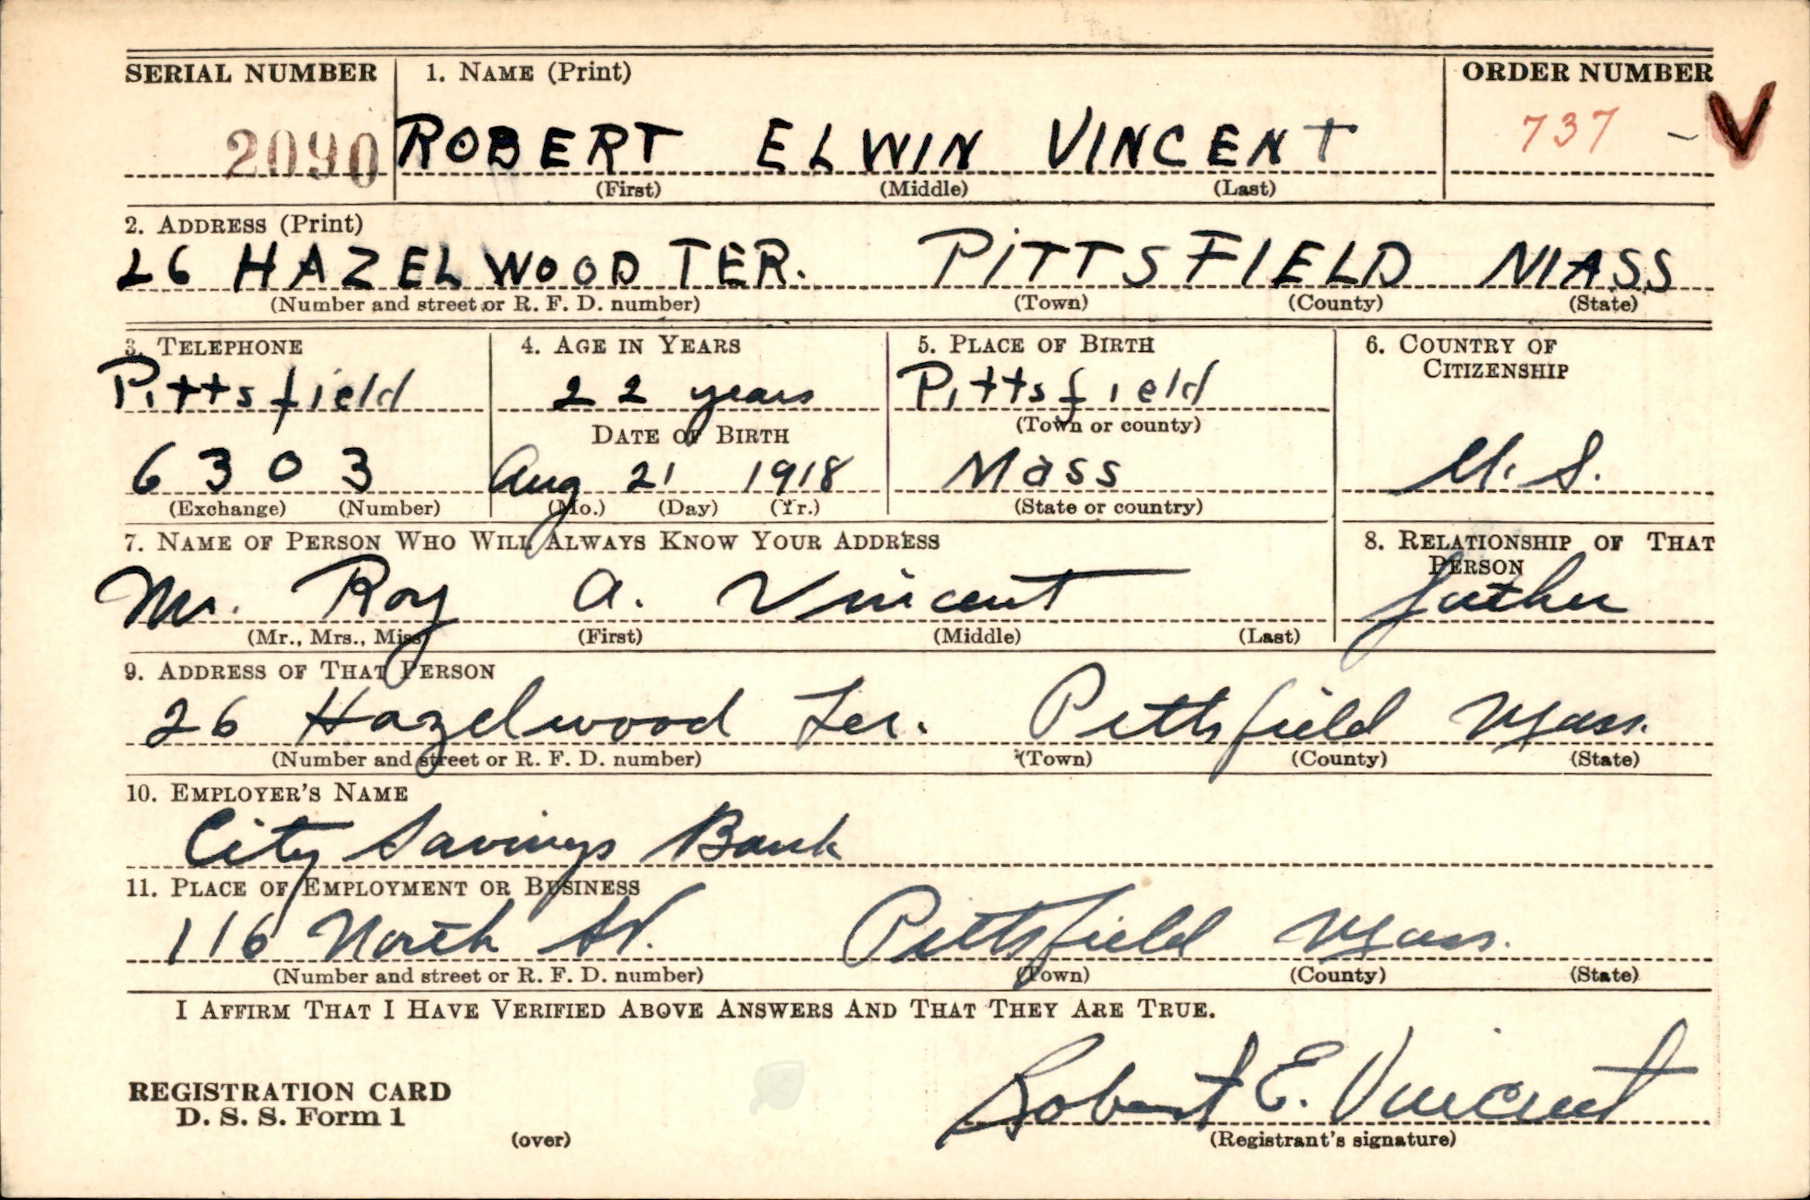 SERIAL NUMBER 1. NAME (Print) ORDER NUMBER
2090 ROBERT ELWIN VINCENT 737 - V
(First) (Middle) (Last)
2. ADDRESS (Print)
26 HAZELWOOD TER. PITTSFIELD MASS
(Number and street or R. F. D. number) (Town) (County) (State)
3. TELEPHONE 4. AGE IN YEARS 5. PLACE OF BIRTH 6. COUNTRY OF
CITIZENSHIP
Pittsfield 22 years Pittsfield
DATE OF BIRTH (Town or county)
6303 Aug 21 1918 Mass U.S.
(Exchange) (Number) (Mo.) (Day) (Yr.) (State or country)
7. NAME OF PERSON WHO WILL ALWAYS KNOW YOUR ADDRESS 8. RELATIONSHIP OF THAT
PERSON
Mr. Roy A. Vincent father
(Mr., Mrs., Miss) (First) (Middle) (Last)
9. ADDRESS OF THAT PERSON
26 Hazelwood Ter. Pittsfield Mass.
(Number and street or R. F. D. number) (Town) (County) (State)
10. EMPLOYER'S NAME
City Savings Bank
11. PLACE OF EMPLOYMENT OR BUSINESS
116 North St. Pittsfield Mass.
(Number and street or R. F. D. number) (Town) (County) (State)
I AFFIRM THAT I HAVE VERIFIED ABOVE ANSWERS AND THAT THEY ARE TRUE.
REGISTRATION CARD
D. S. S. Form 1 Robert E. Vincent
(over) (Registrant's signature)